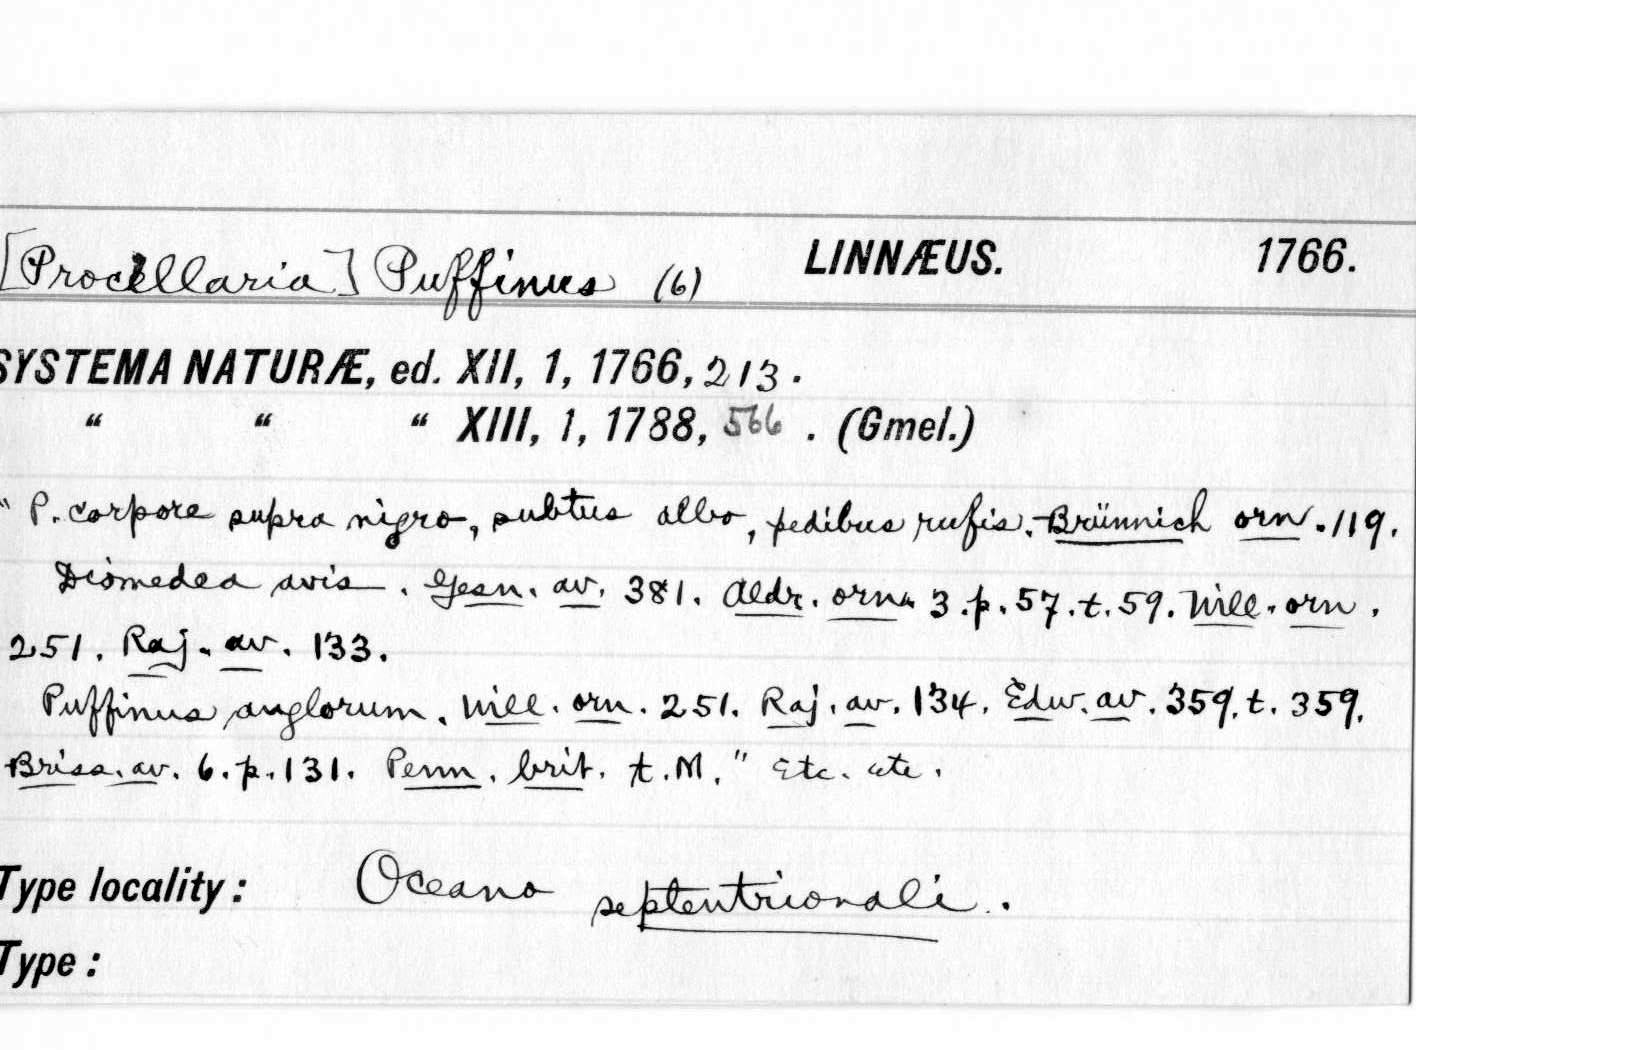 [Procellaria] Puffinus (6) LINNÆUS. 1766.
SYSTEMA NATURÆ, ed. XII, 1, 1766, 213.
" " " XIII, 1, 1788, 566. (Gmel.)
"P. corpore supra nigro, subtus albo, pedibus rufis. Brünnich orn. 119.
Diomedea avis. Gesn. av. 381. Aldr. orn. 3. p. 57. t. 59. Will. orn.
251. Raj. av. 133.
Puffinus anglorum. Will. orn. 251. Raj. av. 134. Edw. av. 359. t. 359.
Briss. av. 6. p. 131. Penn. brit. t. M." Etc. etc.
Type locality: Oceano septentrionali.
Type: